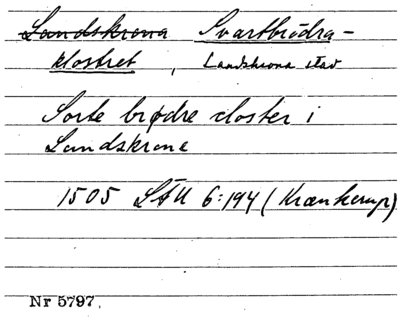 Landskrona Svartbrödra-
klostret, Landskrona stad
Sorte brødre closter i
Landskrone
1505 LÅU 6:194 (Krankerup)
Nr 5797.